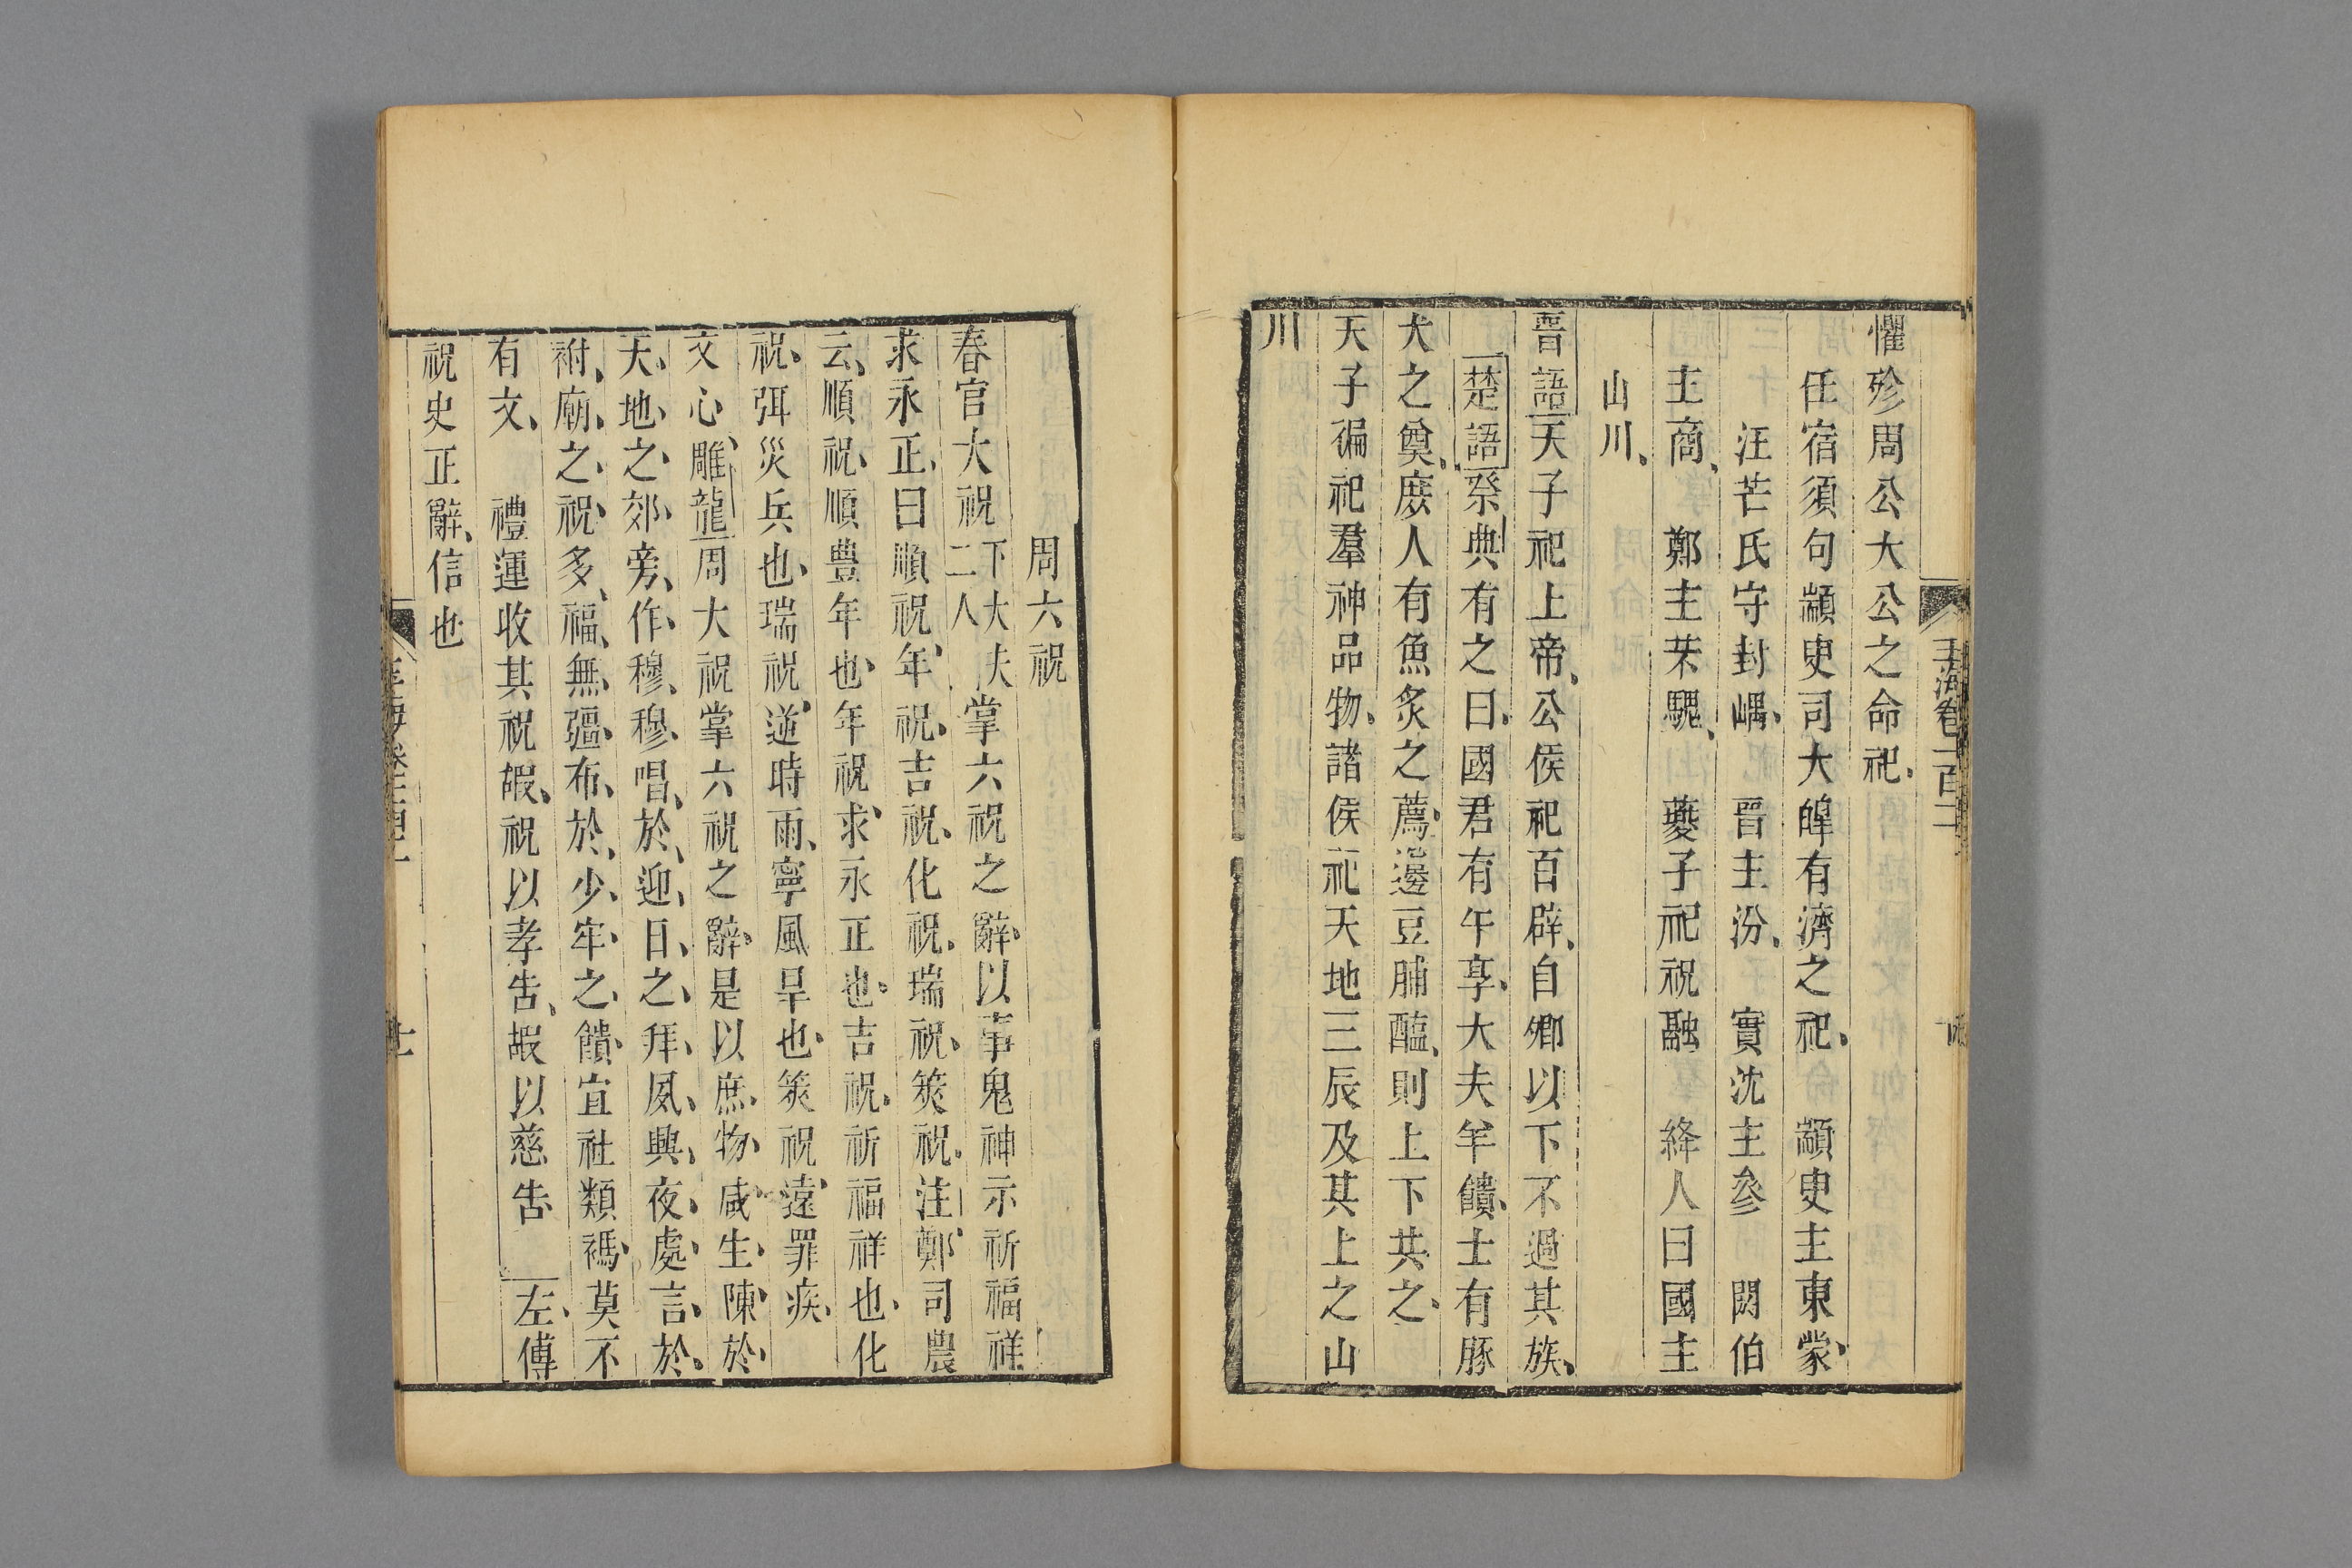 玉海卷一百二
懼殄周公大公之命祀
任宿須句顓臾司大皥有濟之祀　顓臾主東蒙
汪芒氏守封嵎　晉主汾　實沈主參　閼伯
主商　鄭主芣騩　夔子祀祝融　絳人曰國主
山川
晉語天子祀上帝公侯祀百辟自卿以下不過其族
楚語祭典有之曰國君有牛享大夫羊饋士有豚
犬之奠庶人有魚炙之薦籩豆脯醢則上下共之
天子徧祀羣神品物諸侯祀天地三辰及其上之山
川
周六祝
春官大祝下大夫二人掌六祝之辭以事鬼神示祈福祥
求永正曰順祝年祝吉祝化祝瑞祝筴祝注鄭司農
云順祝順豊年也年祝求永正也吉祝祈福祥也化
祝弭災兵也瑞祝逆時雨寧風旱也筴祝遠罪疾
文心雕龍周大祝掌六祝之辭是以庶物咸生陳於
天地之郊旁作穆穆唱於迎日之拜夙興夜處言於
祔廟之祝多福無疆布於少牢之饋宜社類禡莫不
有文　禮運收其祝嘏祝以孝告嘏以慈告　左傳
祝史正辭信也